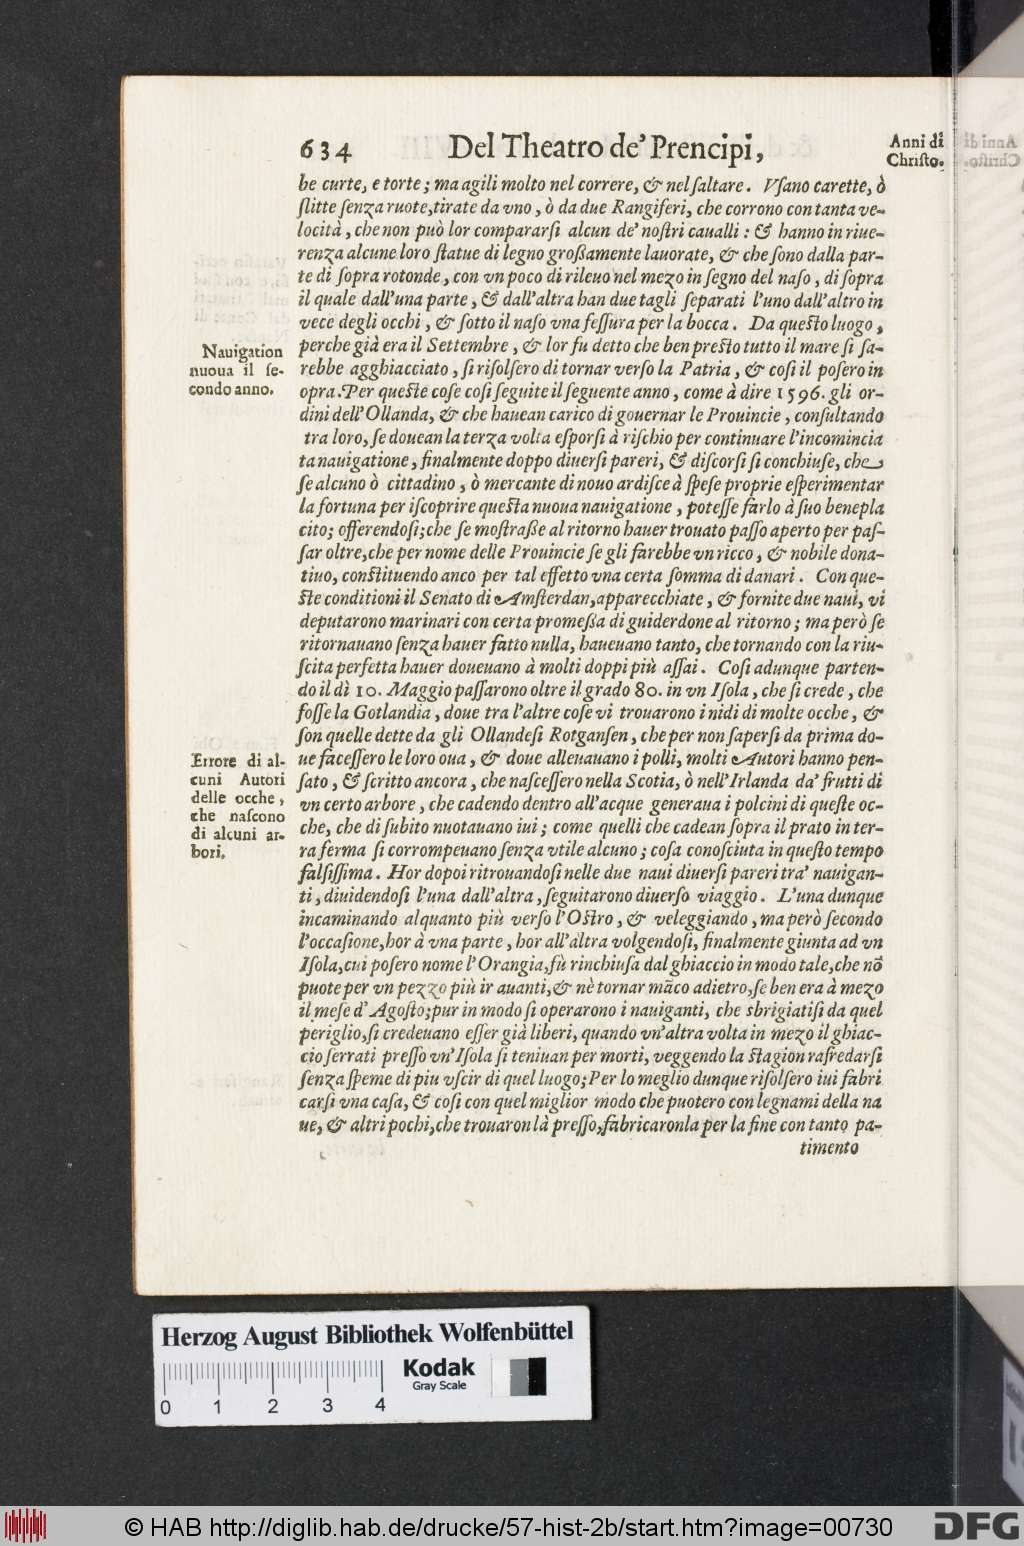 634 Del Theatro de' Prencipi,
Anni di
Christo.
be curte, e torte; ma agili molto nel correre, & nel ſaltare. Vſano carette, ò
ſlitte ſenza ruote, tirate da vno, ò da due Rangiferi, che corrono con tanta ve-
locità, che non può lor compararſi alcun de' noſtri caualli: & hanno in riue-
renza alcune loro ſtatue di legno großamente lauorate, & che ſono dalla par-
te di ſopra rotonde, con vn poco di rileuo nel mezo in ſegno del naſo, di ſopra
il quale dall'una parte, & dall'altra han due tagli ſeparati l'uno dall'altro in
vece degli occhi, & ſotto il naſo vna feſſura per la bocca. Da queſto luogo,
perche già era il Settembre, & lor fu detto che ben preſto tutto il mare ſi ſa-
rebbe agghiacciato, ſi riſolſero di tornar verſo la Patria, & coſi il poſero in
opra. Per queſte coſe coſi ſeguite il ſeguente anno, come à dire 1596. gli or-
dini dell'Ollanda, & che hauean carico di gouernar le Prouincie, conſultando
tra loro, ſe douean la terza volta eſporſi à riſchio per continuare l'incomincia
ta nauigatione, finalmente doppo diuerſi pareri, & diſcorſi ſi conchiuſe, che
ſe alcuno ò cittadino, ò mercante di nouo ardiſce à ſpeſe proprie eſperimentar
la fortuna per iſcoprire queſta nuoua nauigatione, poteſſe farlo à ſuo benepla
cito; offerendoſi; che ſe moſtraße al ritorno hauer trouato paſſo aperto per paſ-
ſar oltre, che per nome delle Prouincie ſe gli farebbe vn ricco, & nobile dona-
tiuo, conſtituendo anco per tal effetto vna certa ſomma di danari. Con que-
ſte conditioni il Senato di Amſterdan, apparecchiate, & fornite due naui, vi
deputarono marinari con certa promeßa di guiderdone al ritorno; ma però ſe
ritornauano ſenza hauer fatto nulla, haueuano tanto, che tornando con la riu-
ſcita perfetta hauer doueuano à molti doppi più aſſai. Coſi adunque parten-
do il dì 10. Maggio paſſarono oltre il grado 80. in vn Iſola, che ſi crede, che
foſſe la Gotlandia, doue tra l'altre coſe vi trouarono i nidi di molte ocche, &
ſon quelle dette da gli Ollandeſi Rotganſen, che per non ſaperſi da prima do-
ue faceſſero le loro oua, & doue alleuauano i polli, molti Autori hanno pen-
ſato, & ſcritto ancora, che naſceſſero nella Scotia, ò nell'Irlanda da' frutti di
vn certo arbore, che cadendo dentro all'acque generaua i polcini di queſte oc-
che, che di ſubito nuotauano iui; come quelli che cadean ſopra il prato in ter-
ra ferma ſi corrompeuano ſenza vtile alcuno; coſa conoſciuta in queſto tempo
falſiſſima. Hor dopoi ritrouandoſi nelle due naui diuerſi pareri tra' nauigan-
ti, diuidendoſi l'una dall'altra, ſeguitarono diuerſo viaggio. L'una dunque
incaminando alquanto più verſo l'Oſtro, & veleggiando, ma però ſecondo
l'occaſione, hor à vna parte, hor all'altra volgendoſi, finalmente giunta ad vn
Iſola, cui poſero nome l'Orangia, fù rinchiuſa dal ghiaccio in modo tale, che nõ
puote per vn pezzo più ir auanti, & nè tornar mãco adietro, ſe ben era à mezo
il meſe d'Agoſto; pur in modo ſi operarono i nauiganti, che sbrigiatiſi da quel
periglio, ſi credeuano eſſer già liberi, quando vn'altra volta in mezo il ghiac-
cio ſerrati preſſo vn'Iſola ſi teniuan per morti, veggendo la ſtagion rafredarſi
ſenza ſpeme di piu vſcir di quel luogo; Per lo meglio dunque riſolſero iui fabri
carſi vna caſa, & coſi con quel miglior modo che puotero con legnami della na
ue, & altri pochi, che trouaron là preſſo, fabricaronla per la fine con tanto pa-
timento
Nauigation
nuoua il ſe-
condo anno.
Errore di al-
cuni Autori
delle ocche,
che naſcono
di alcuni ar-
bori.
Herzog August Bibliothek Wolfenbüttel
Kodak
Gray Scale
0 1 2 3 4
© HAB http://diglib.hab.de/drucke/57-hist-2b/start.htm?image=00730
DFG